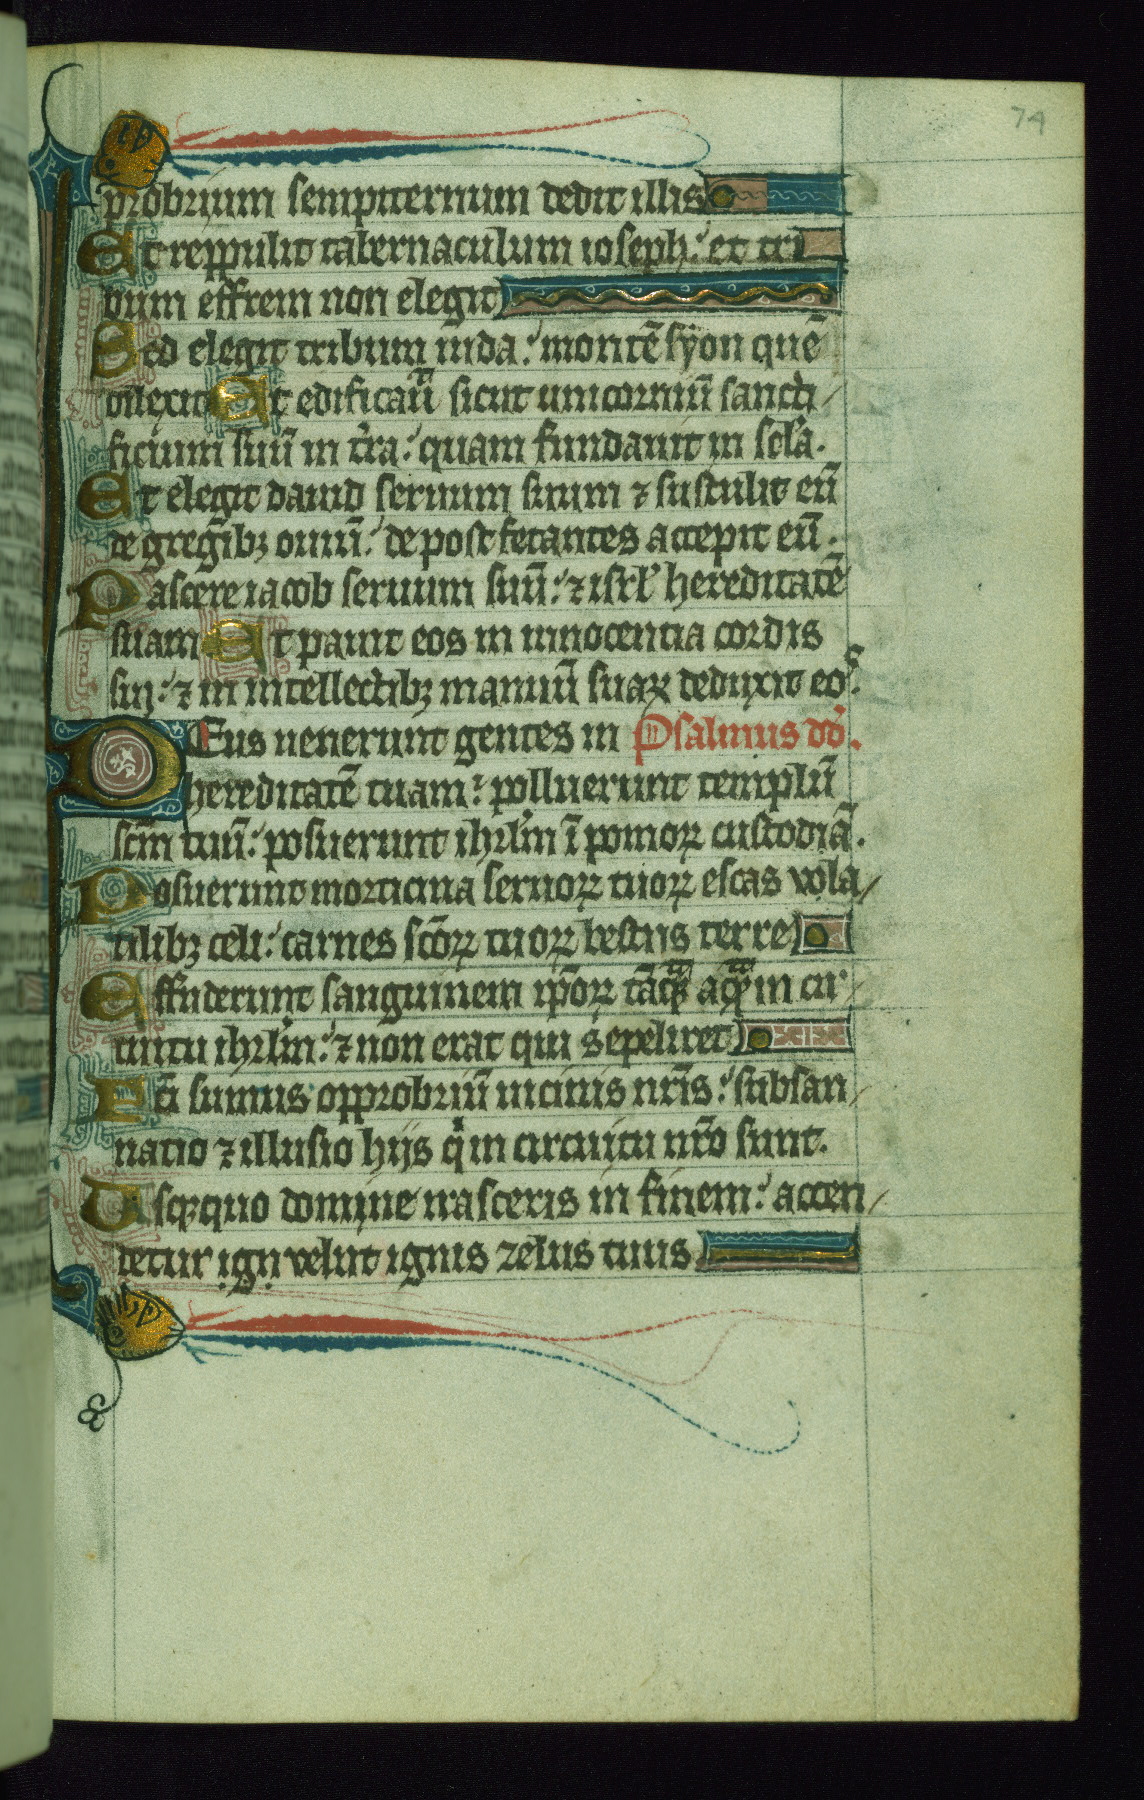 74
probrium sempiternum dedit illis
Et reppulit tabernaculum ioseph: et tri
bum effrem non elegit
Sed elegit tribum iuda: montē syon quē
dilexit Et edificauit sicut unicorniū sancti
ficium suū in t̄ra: quam fundauit in sc̄la.
Et elegit dauid seruum suum ⁊ sustulit eū
de gregibꝫ ouiū: de post fetantes accepit eū.
Pascere iacob seruum suū: ⁊ isrl̄ hereditatē
suam Et pauit eos in innocentia cordis
sui: ⁊ in intellectibꝫ manuū suaꝝ deduxit eos.
DEus uenerunt gentes in Psalmus dd̄.
hereditatē tuam: polluerunt templū
scm̄ tuū: posuerunt ihrl̄m ī pomoꝝ custodiā.
Posuerunt morticina seruoꝝ tuoꝝ escas vola
tilibꝫ celi: carnes scōꝝ tuoꝝ bestiis terre
Effuderunt sanguinem ip̄oꝝ tāqͣꝫ aqͣm in cir
cuitu ihrl̄m: ⁊ non erat qui sepeliret
Fc̄i sumus opprobriū uicinis nr̄is: subsan
natio ⁊ illusio hijs qͥ in circuitu nr̄o sunt.
Usqꝫquo domine irasceris in finem: accen
detur igni velut ignis zelus tuus